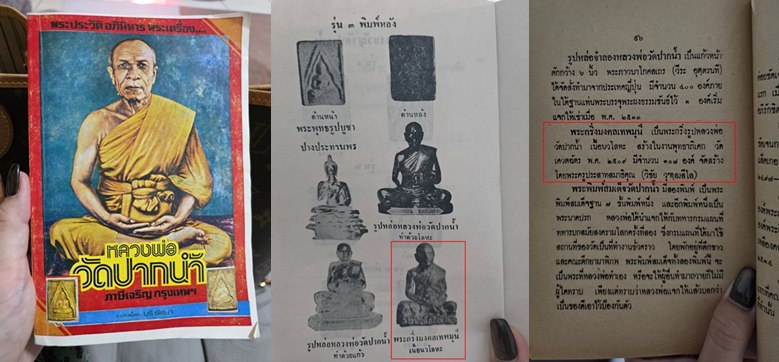 พระประวัติ อภินิหาร พระเครื่อง....
หลวงพ่อ
วัดปากน้ำ
ภาษีเจริญ กรุงเทพฯ
รุ่น ๓ พิมพ์หลัง
ด้านหน้า
ด้านหลัง
พระพุทธรูปบูชา
ปางประทานพร
รูปหล่อหลวงพ่อวัดปากน้ำ
ทำด้วยโลหะ
รูปหล่อหลวงพ่อวัดปากน้ำ
ทำด้วยแก้ว
พระกริ่งมงคลเทพมุนี
เนื้อนวโลหะ
๕๖
รูปหล่อจำลองหลวงพ่อวัดปากน้ำ เป็นแก้วหน้า
ตักกว้าง ๖ นิ้ว พระภาวนาโกศลเถร (วีระ อุตฺตรนที)
ได้จัดสั่งทำมาจากประเทศญี่ปุ่น มีจำนวน ๕๐๐ องค์ภาย
ในใต้ฐานแท่นพระบรรจุพระผงธรรมขันธ์ไว้ ๑ องค์เริ่ม
แจกให้เช่าเมื่อ พ.ศ. ๒๕๑๓
พระกริ่งมงคลเทพมุนี เป็นพระกริ่งรูปหลวงพ่อ
วัดปากน้ำ เนื้อนวโลหะ สร้างในงานพุทธาภิเศก วัด
พ.ศ. ๒๕๐๙ มีจำนวน ๓๐๘ องค์ จัดสร้าง
โดยพระครูประสาทสมาธิคุณ (วิชัย วุฑฺฒสีโล)
พระพิมพ์สมเด็จวัดปากน้ำ มีสองพิมพ์ เป็นพระ
พิมพ์สมเด็จฐาน ๗ ชั้นพิมพ์หนึ่ง และอีกพิมพ์หนึ่งเป็น
พระนาคปรก หลวงพ่อได้นำแจกให้กับทหารกรมแผนที่
ทหารบกสมัยสงครามโลกครั้งที่สอง ซึ่งกรมแผนที่ได้มาใช้
สถานที่ของวัดเป็นที่ทำงานชั่วคราว โดยพักอยู่ที่ตึกขาว
และคณะศึกษาภิพก พระพิมพ์สมเด็จทั้งสองพิมพ์นี้ จะ
เป็นพระที่หลวงพ่อทำเอง หรือจะให้ผู้อื่นทำมาถวายก็ไม่มี
ผู้ใดทราบ เพียงแต่ทราบว่าหลวงพ่อแจกให้แล้วบอกว่า
เป็นของดีเอาไว้ป้องกันตัว